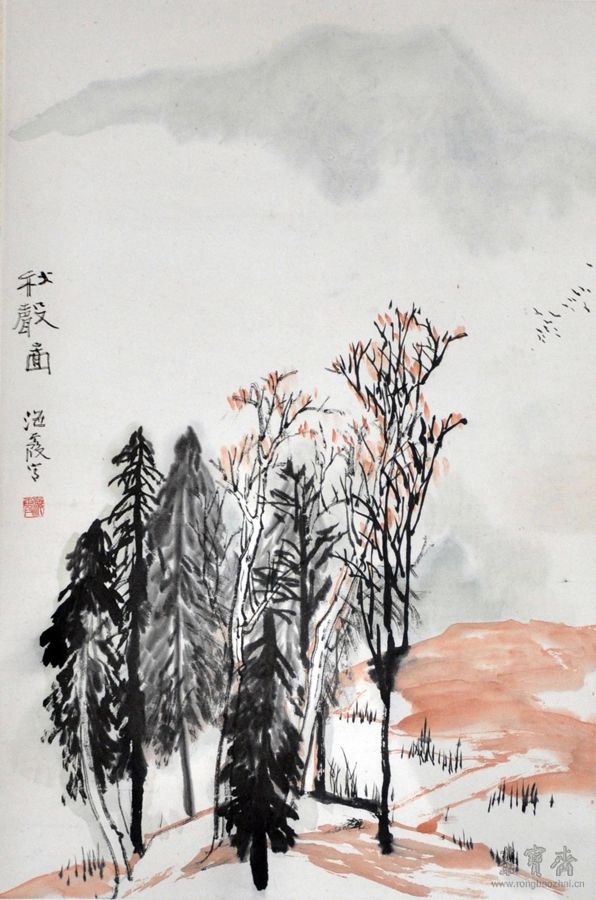 秋聲圖
海霞写
榮寳齋
www.rongbaozhai.cn